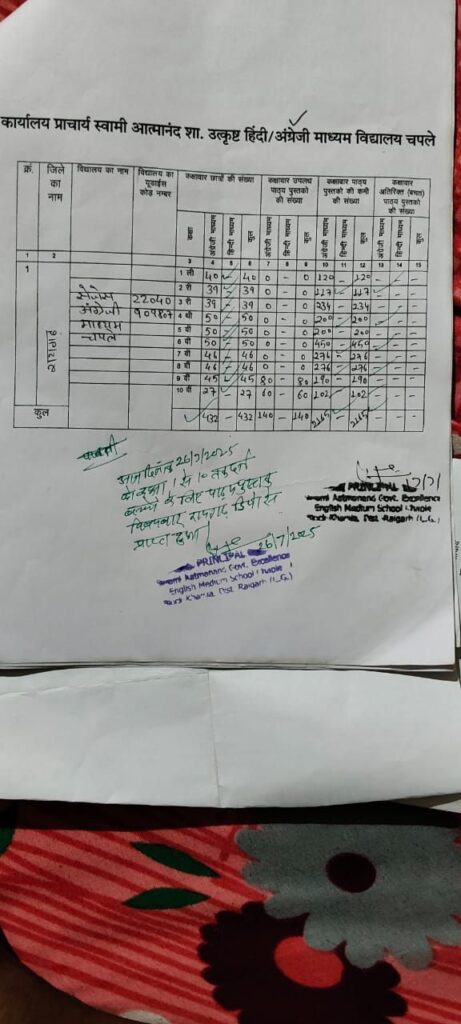 कार्यालय प्राचार्य स्वामी आत्मानंद शा. उत्कृष्ट हिंदी/अंग्रेजी माध्यम विद्यालय चपले
क्र. जिले का नाम विद्यालय का नाम विद्यालय का यूडाईस कोड नम्बर कक्षावार छात्रों की संख्या कक्षावार उपलब्ध पाठ्य पुस्तको की संख्या कक्षावार पाठ्य पुस्तको की कमी की संख्या कक्षावार अतिरिक्त (बचत) पाठ्य पुस्तको की संख्या
कक्षा अंग्रेजी माध्यम हिन्दी माध्यम कुल अंग्रेजी माध्यम हिन्दी माध्यम कुल अंग्रेजी माध्यम हिन्दी माध्यम कुल अंग्रेजी माध्यम हिन्दी माध्यम कुल
1 2 3 4 5 6 7 8 9 10 11 12 13 14 15
1 रायगढ़ सेजेस अंग्रेजी माध्यम चपले
1 ली 40 - 40 0 - 0 120 - 120 - - -
2 री 39 - 39 0 - 0 117 - 117 - - -
3 री 39 - 39 0 - 0 234 - 234 - - -
4 थी 50 - 50 0 - 0 200 - 200 - - -
5 वी 50 - 50 0 - 0 200 - 200 - - -
6 वी 50 - 50 0 - 0 450 - 450 - - -
7 वी 46 - 46 0 - 0 276 - 276 - - -
8 वी 46 - 46 0 - 0 276 - 276 - - -
9 वी 45 - 45 80 - 80 190 - 190 - - -
10 वी 27 - 27 60 - 60 102 - 102 - - -
कुल 432 - 432 140 - 140 2165 - 2165 - - -
आज दिनांक 26/7/2025
को कक्षा 1 से 10 तक
के लिए पाठ्यपुस्तक
रायगढ़ डिपो से
प्राप्त हुआ।
26/7/2025
PRINCIPAL
Swami Aatmanand Govt. Excellence
English Medium School Chaple
Dist. Raigarh (C.G.)
PRINCIPAL
Swami Aatmanand Govt. Excellence
English Medium School Chaple
Dist. Raigarh (C.G.)